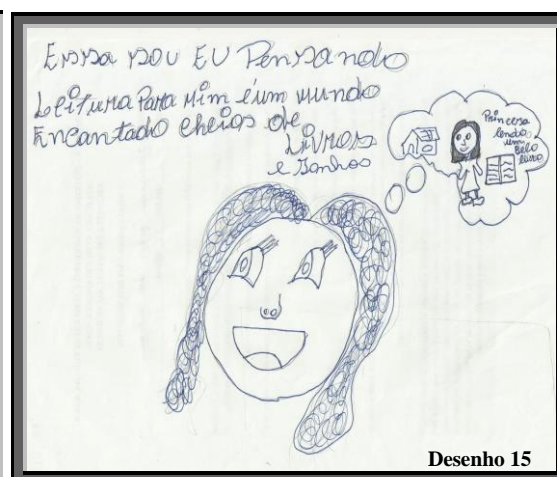 Essa sou EU Pensando
Leitura Para mim é um mundo
Encantado cheios de
Livros
e Sonhos
Princesa
lendo
um
Belo
livro
Desenho 15